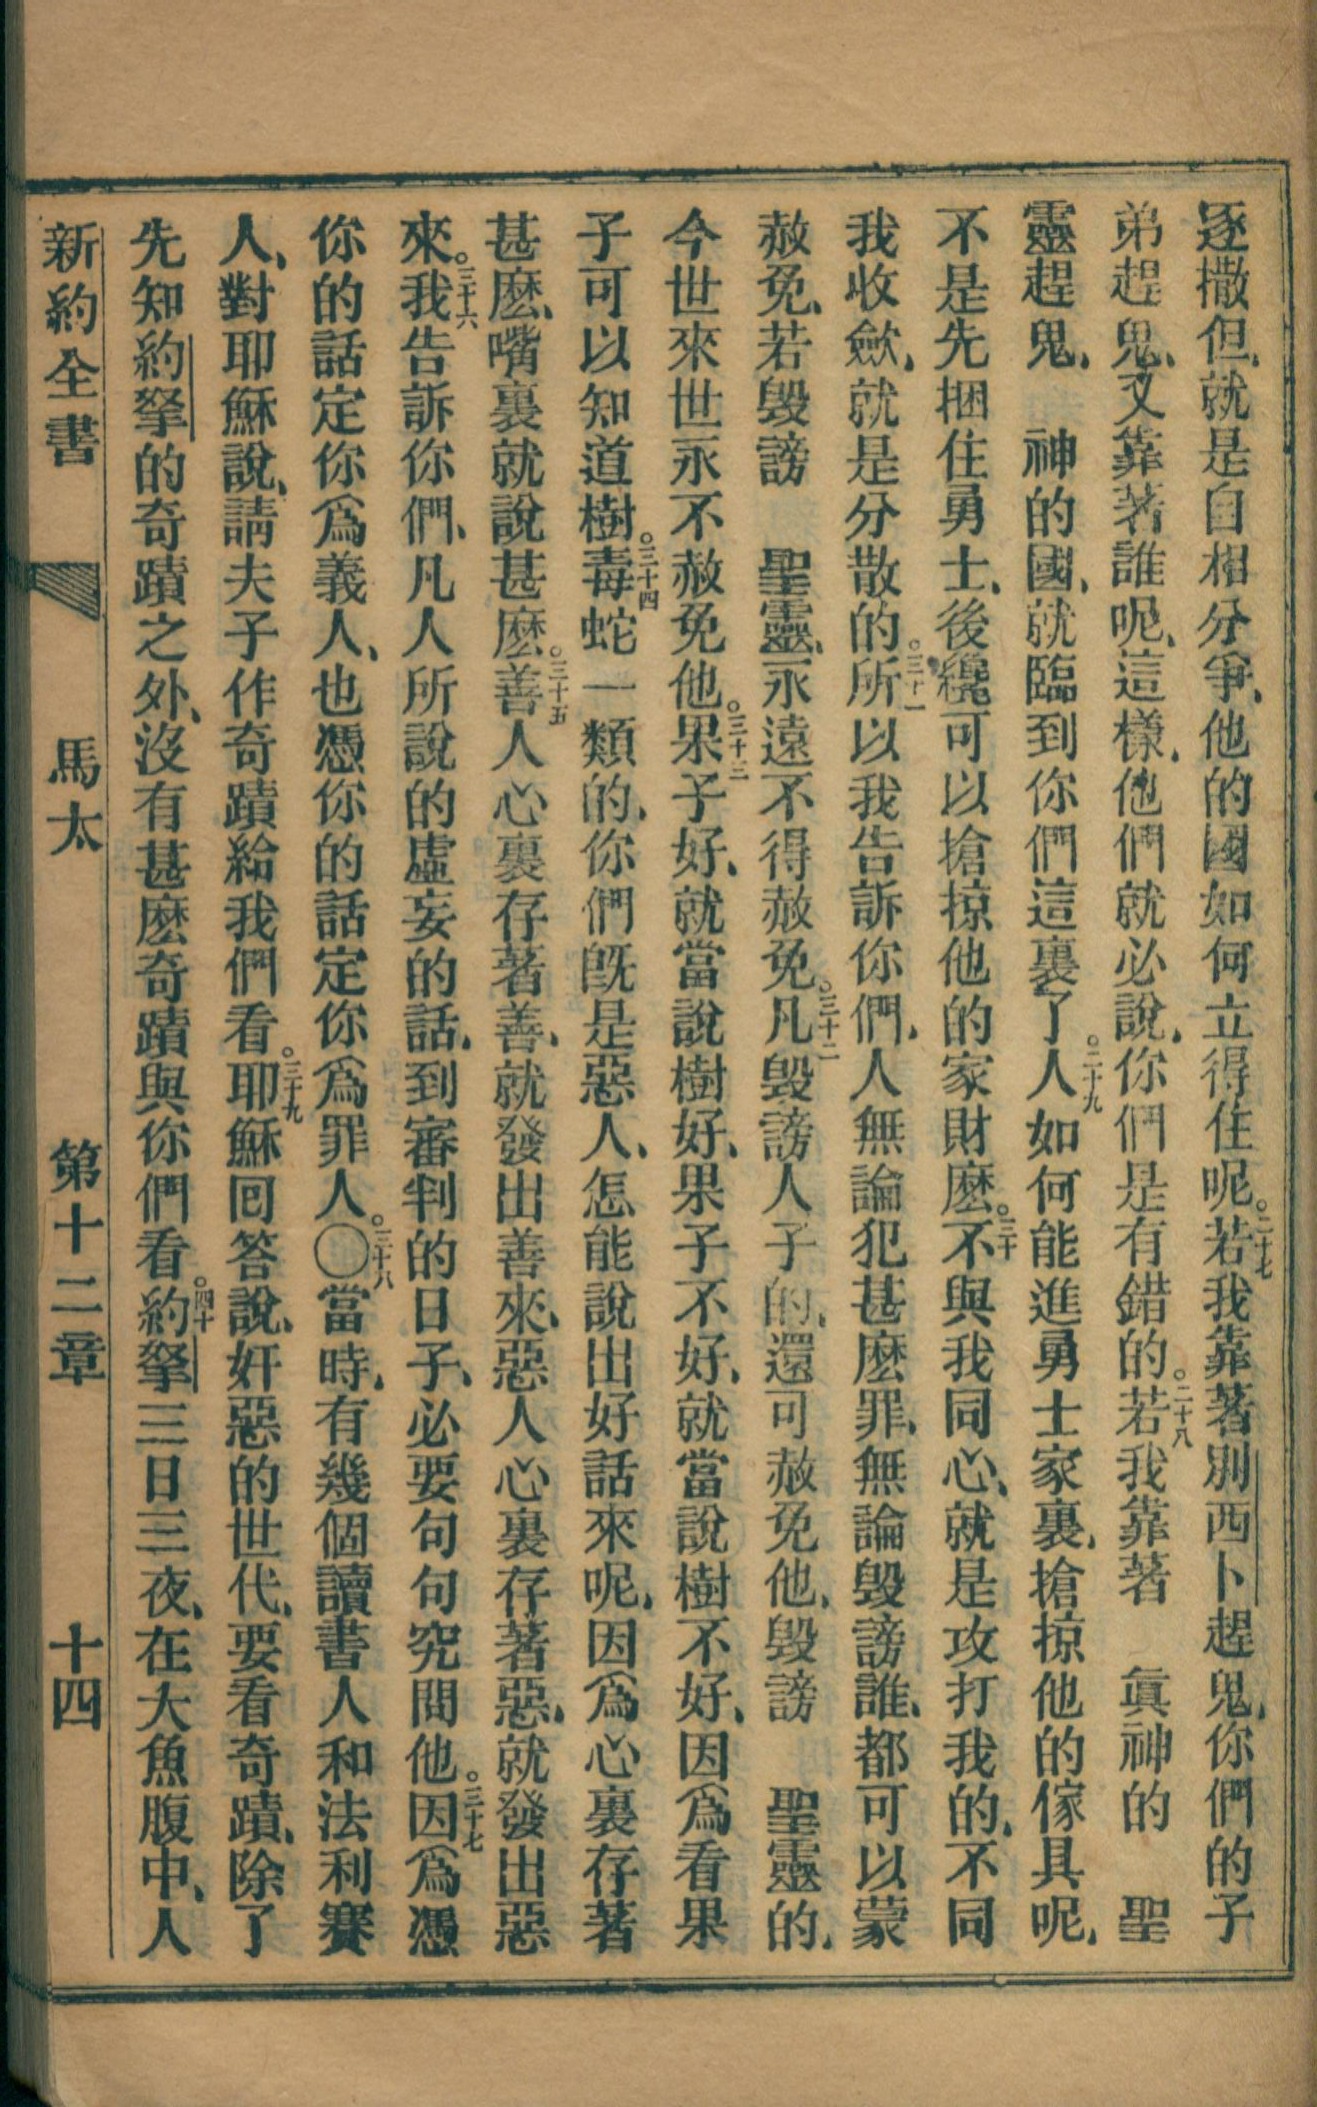 逐撒但、就是自相分爭、他的國如何立得住呢。二十七若我靠著別西卜趕鬼、你們的子
弟趕鬼、又靠著誰呢、這樣、他們就必說、你們是有錯的。二十八若我靠著　眞神的　聖
靈趕鬼、　神的國、就臨到你們這裏了。二十九人如何能進勇士家裏、搶掠他的傢具呢、
不是先捆住勇士、後纔可以搶掠他的家財麽。三十不與我同心、就是攻打我的、不同
我收斂、就是分散的。三十一所以我告訴你們、人無論犯甚麽罪、無論毀謗誰、都可以蒙
赦免、若毀謗　聖靈、永遠不得赦免。三十二凡毀謗人子的、還可赦免他、毀謗　聖靈的、
今世來世永不赦免他。三十三果子好、就當說樹好、果子不好、就當說樹不好、因爲看果
子可以知道樹。三十四毒蛇一類的、你們旣是惡人、怎能說出好話來呢、因爲心裏存著
甚麽、嘴裏就說甚麽。三十五善人心裏存著善、就發出善來、惡人心裏存著惡、就發出惡
來。三十六我告訴你們、凡人所說的虛妄的話、到審判的日子、必要句句究問他。三十七因爲憑
你的話定你爲義人、也憑你的話定你爲罪人。〇三十八當時、有幾個讀書人和法利賽
人、對耶穌說、請夫子作奇蹟給我們看。三十九耶穌囘答說、奸惡的世代、要看奇蹟、除了
先知約拏的奇蹟之外、沒有甚麽奇蹟與你們看。四十約拏三日三夜、在大魚腹中、人
新約全書　馬太　第十二章　十四